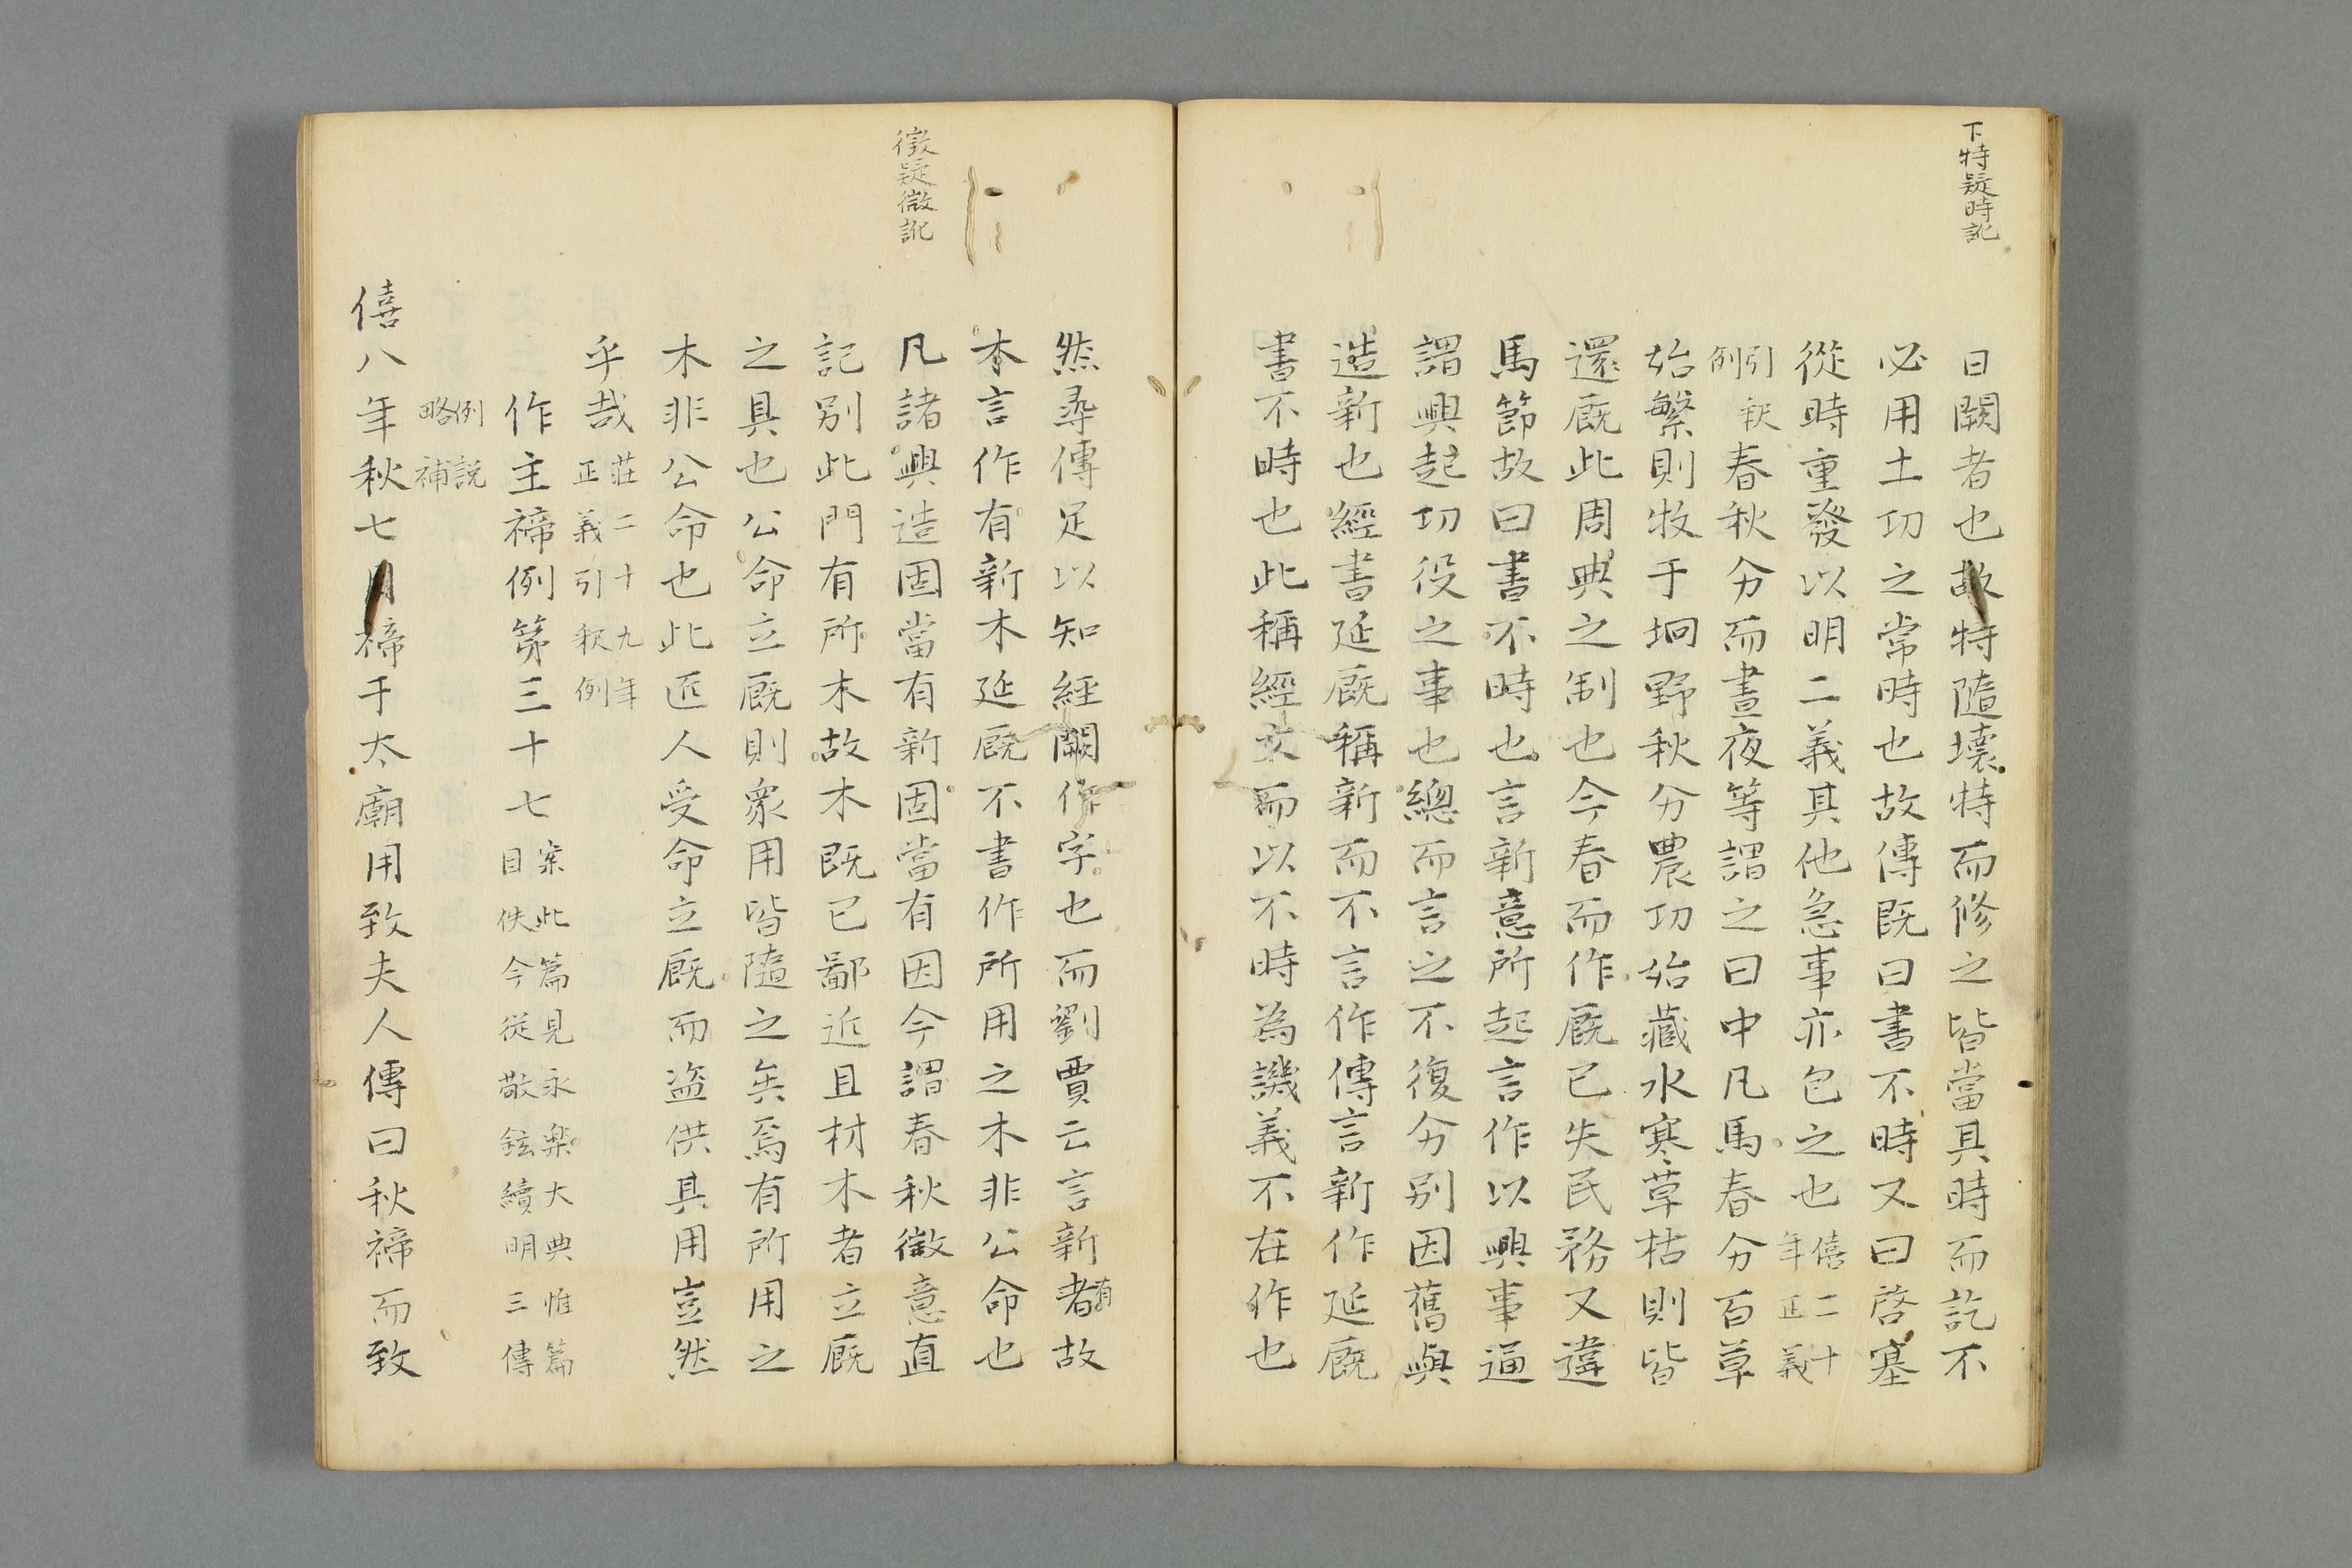 下特疑時訛
曰闕者也故特隨壞特而修之皆當具時而訖不
必用土功之常時也故傳既曰書不時又曰啓塞
從時重發以明二義其他急事亦包之也僖二十
年正義
引釈
例春秋分而晝夜等謂之曰中凡馬春分百草
始繁則牧于坰野秋分農功始藏水寒草枯則皆
還廐此周典之制也今春而作廐已失民務又違
馬節故曰書不時也言新意所起言作以興事逼
謂興起功役之事也總而言之不復分別因舊與
造新也經書延廐稱新而不言作傳言新作延廐
書不時也此稱經文而以不時為譏義不在作也
然尋傳足以知經闕作字也而劉賈云言新有者故
木言作有新木延廐不書作所用之木非公命也
徵疑微訛
凡諸興造固當有新固當有因今謂春秋徵意直
記別此門有所木故木既已鄙近且材木者立廐
之具也公命立廐則眾用皆隨之矣焉有所用之
木非公命也此匠人受命立廐而盗供其用豈然
乎哉莊二十九年
正義引釈例
作主禘例第三十七案此篇見永楽大典惟篇
目佚今従敬鉉續明三傳
例説
略補
僖八年秋七月禘于太廟用致夫人傳曰秋禘而致